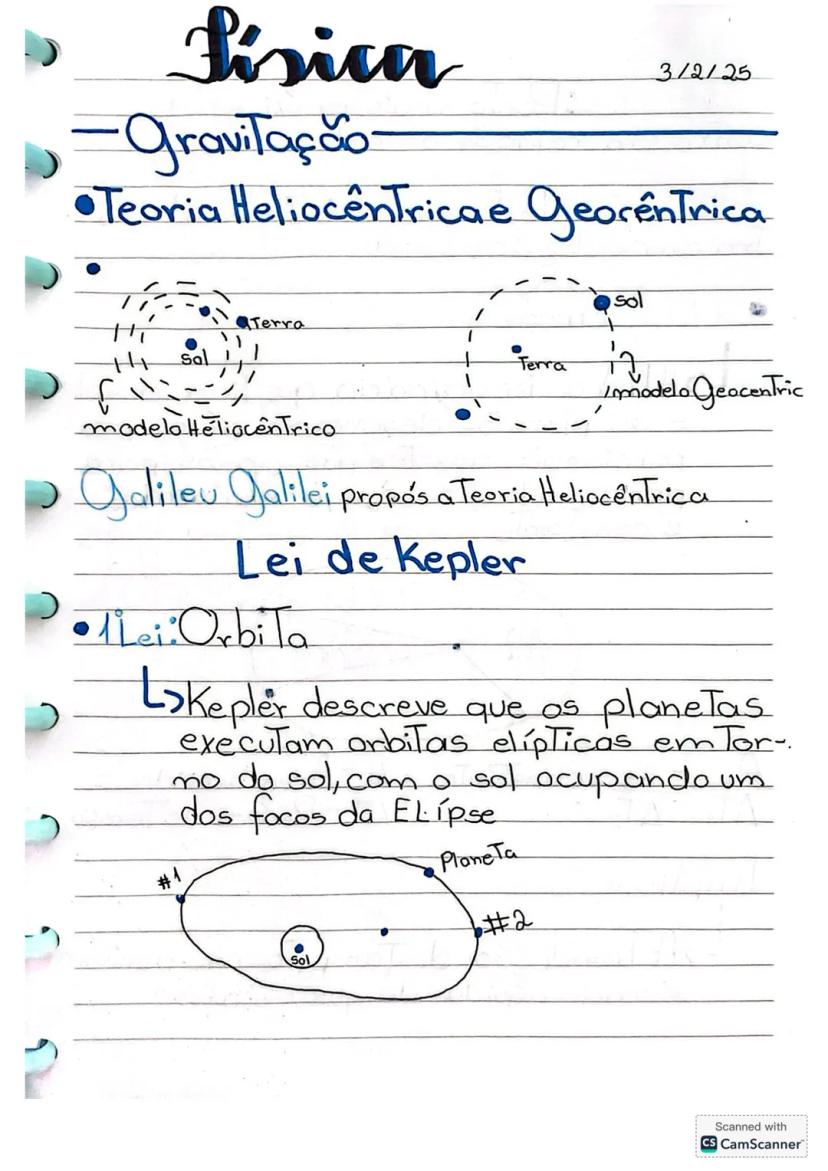 Física
3/2/25
Gravitação
•Teoria Heliocêntrica e Geocêntrica
Terra
Sol
modelo Heliocêntrico
Sol
Terra
modelo Geocentric
Galileu Galilei propós a Teoria Heliocêntrica
Lei de Kepler
•1Lei: Orbita
↳Kepler descreve que os planetas
executam orbitas elípticas em tor-
no do sol, com o sol ocupando um
dos focos da Elípse
#1
Planeta
#2
Sol
Scanned with
CS CamScanner